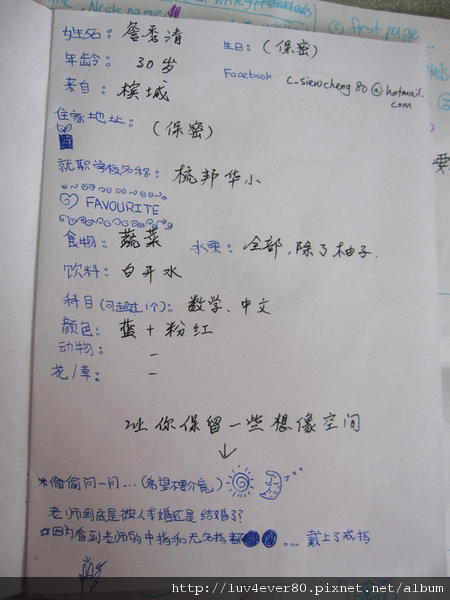 Nick name
first page
姓名: 詹秀清 生日: (保密)
年龄: 30 岁
Facebook c-siewcheng80@hotmail.com
来自: 槟城
住家地址: (保密)
就职学校名称: 梳邦华小
FAVOURITE
食物: 蔬菜 水果: 全部,除了柚子.
饮料: 白开水
科目(可超过1个): 数学、中文
颜色: 蓝 + 粉红
动物: –
花/草: –
让你保留一些想像空间
↓
*偷偷问一问...(希望不要介意) zzz
老师到底是被人求婚还是结婚了?
因为看到老师的中指和无名指都 ... 戴上了戒指
http://luv4ever80.pixnet.net/album